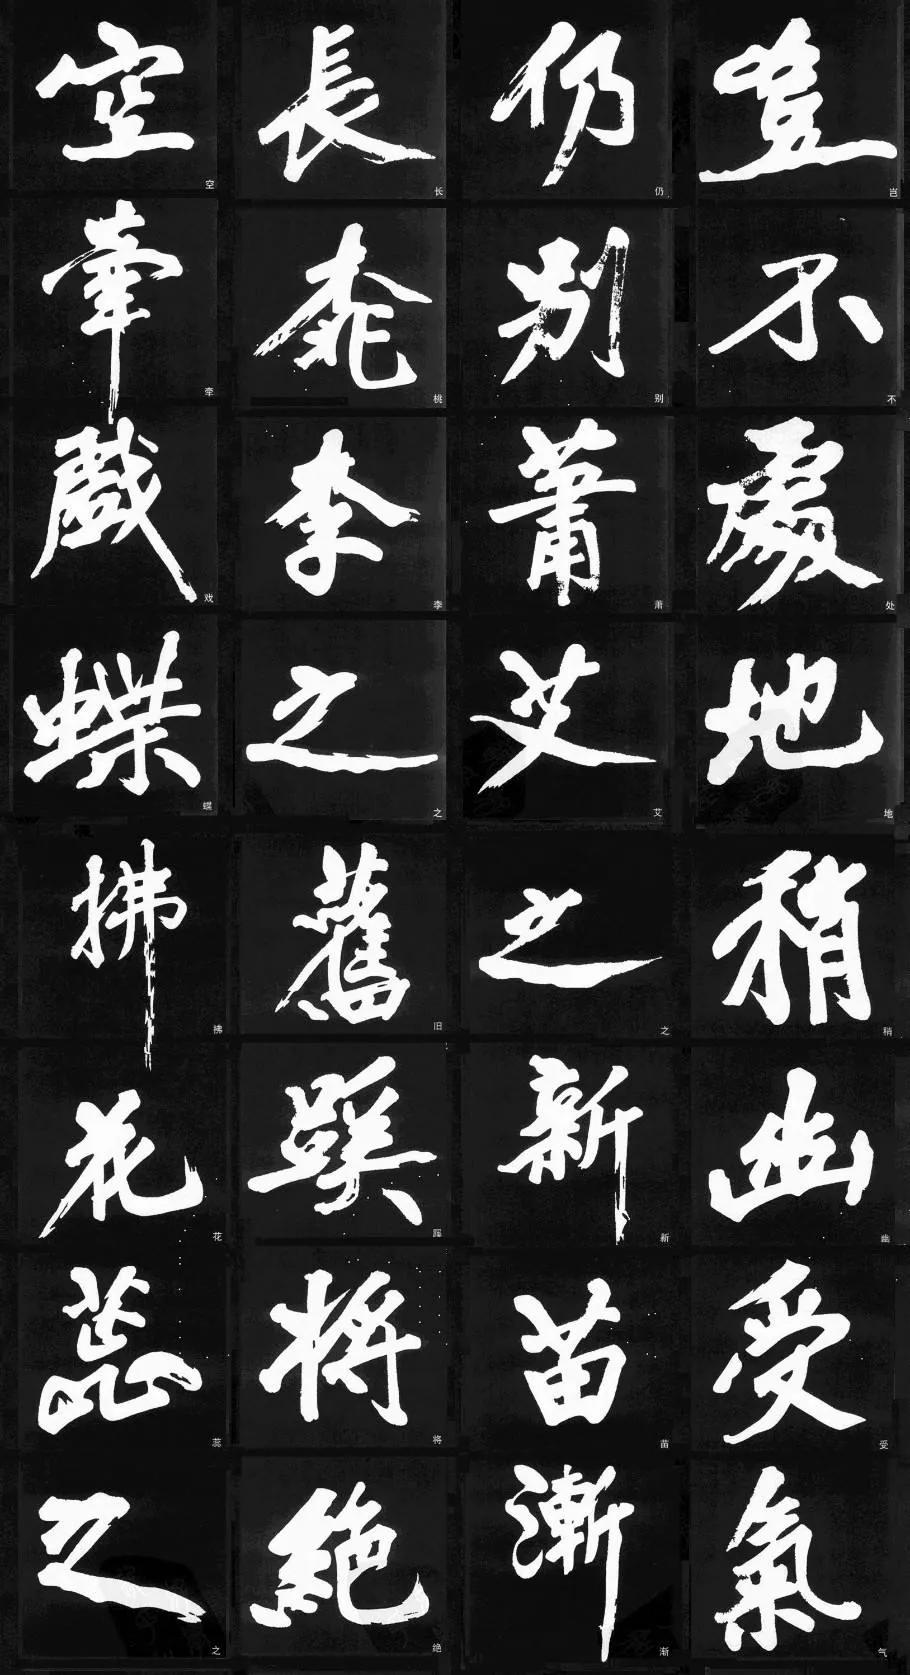 豈不處地稍幽受氣
仍別蕭艾之新苗漸
長桃李之舊蹊將絕
空牽戲蝶拂花蕊之
岂不处地稍幽受气
仍别萧艾之新苗渐
长桃李之旧蹊将绝
空牵戏蝶拂花蕊之